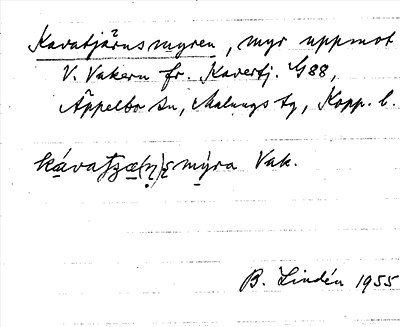 Kavatjärnsmyren, myr uppmot
V. Vakern fr. Kavertj. G88,
Äppelbo sn, Malungs tg, Kopp. l.
mýra Vak.
B. Lindén 1955